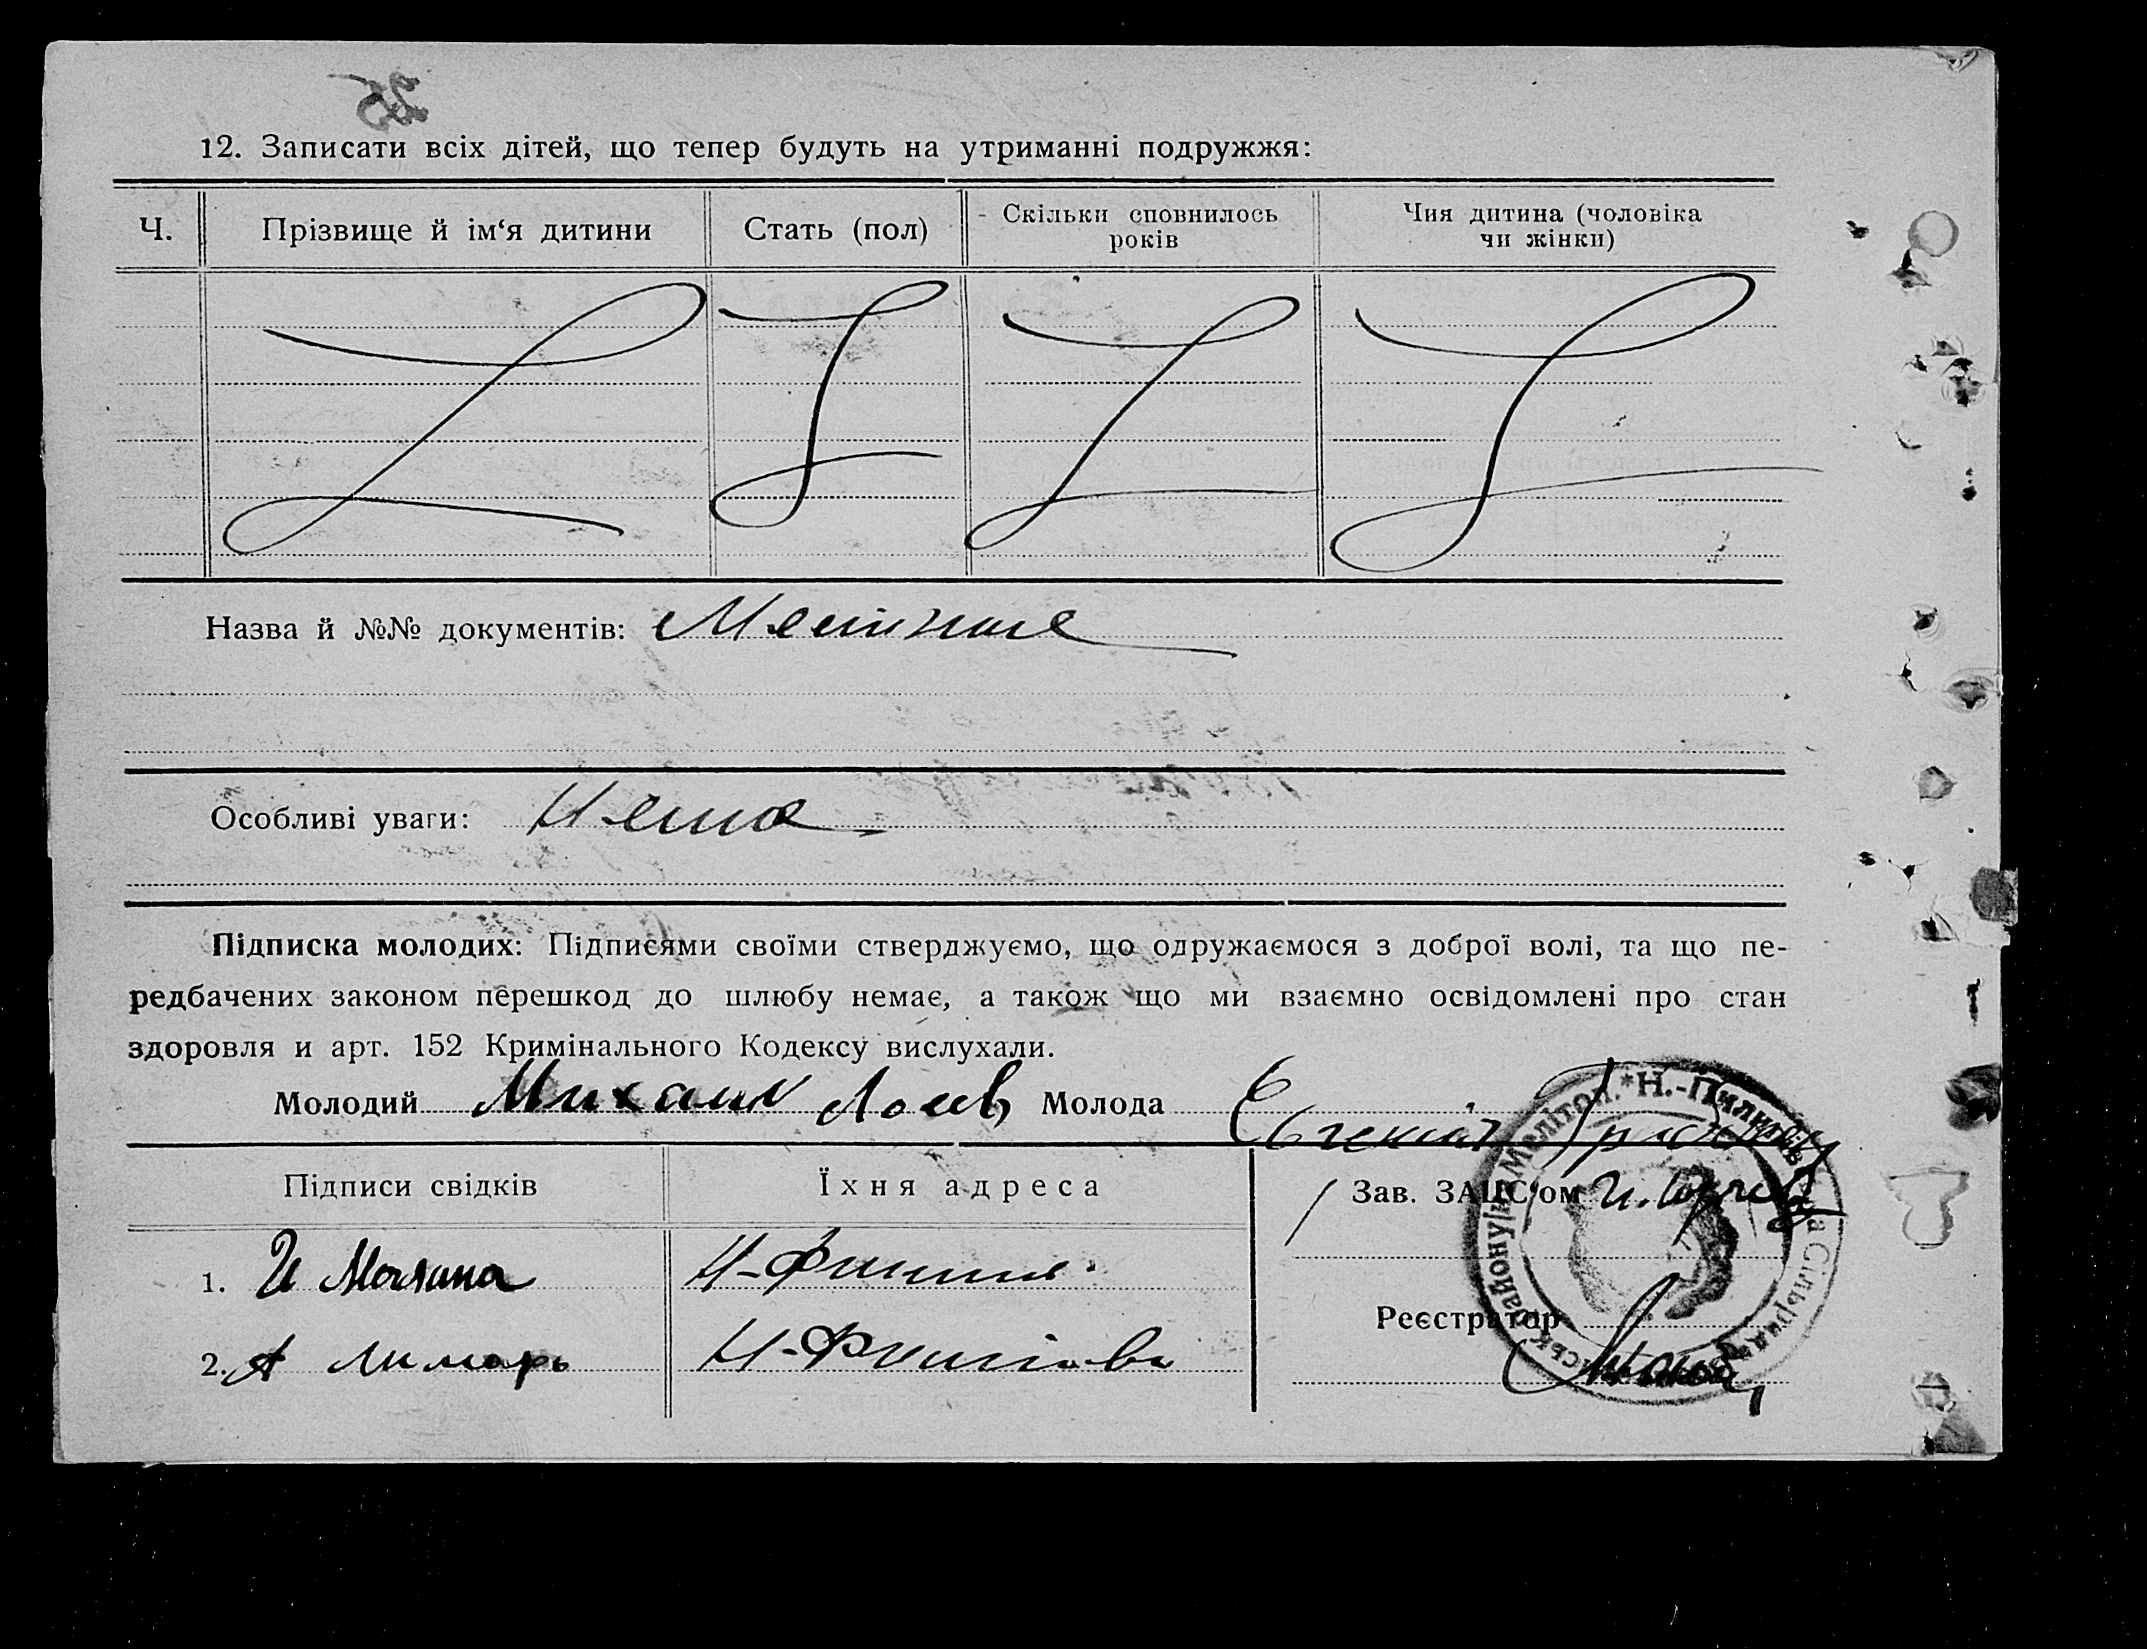 12. Записати всіх дітей, що тепер будуть на утриманні подружжя:
Ч. Прізвище й ім‘я дитини Стать (пол) Скільки сповнилось років Чия дитина (чоловіка чи жінки)
Назва й №№ документів:
Особливі уваги: Нема
Підписка молодих: Підписями своїми стверджуємо, що одружаємося з доброї волі, та що пе-
редбачених законом перешкод до шлюбу немає, а також що ми взаємно освідомлені про стан
здоровля и арт. 152 Кримінального Кодексу вислухали.
Молодий Михаил Молода Євгенія
Підписи свідків Їхня адреса Зав. ЗАЦС‘ом
1. И Малина
Реєстратор
2. А Лимарь